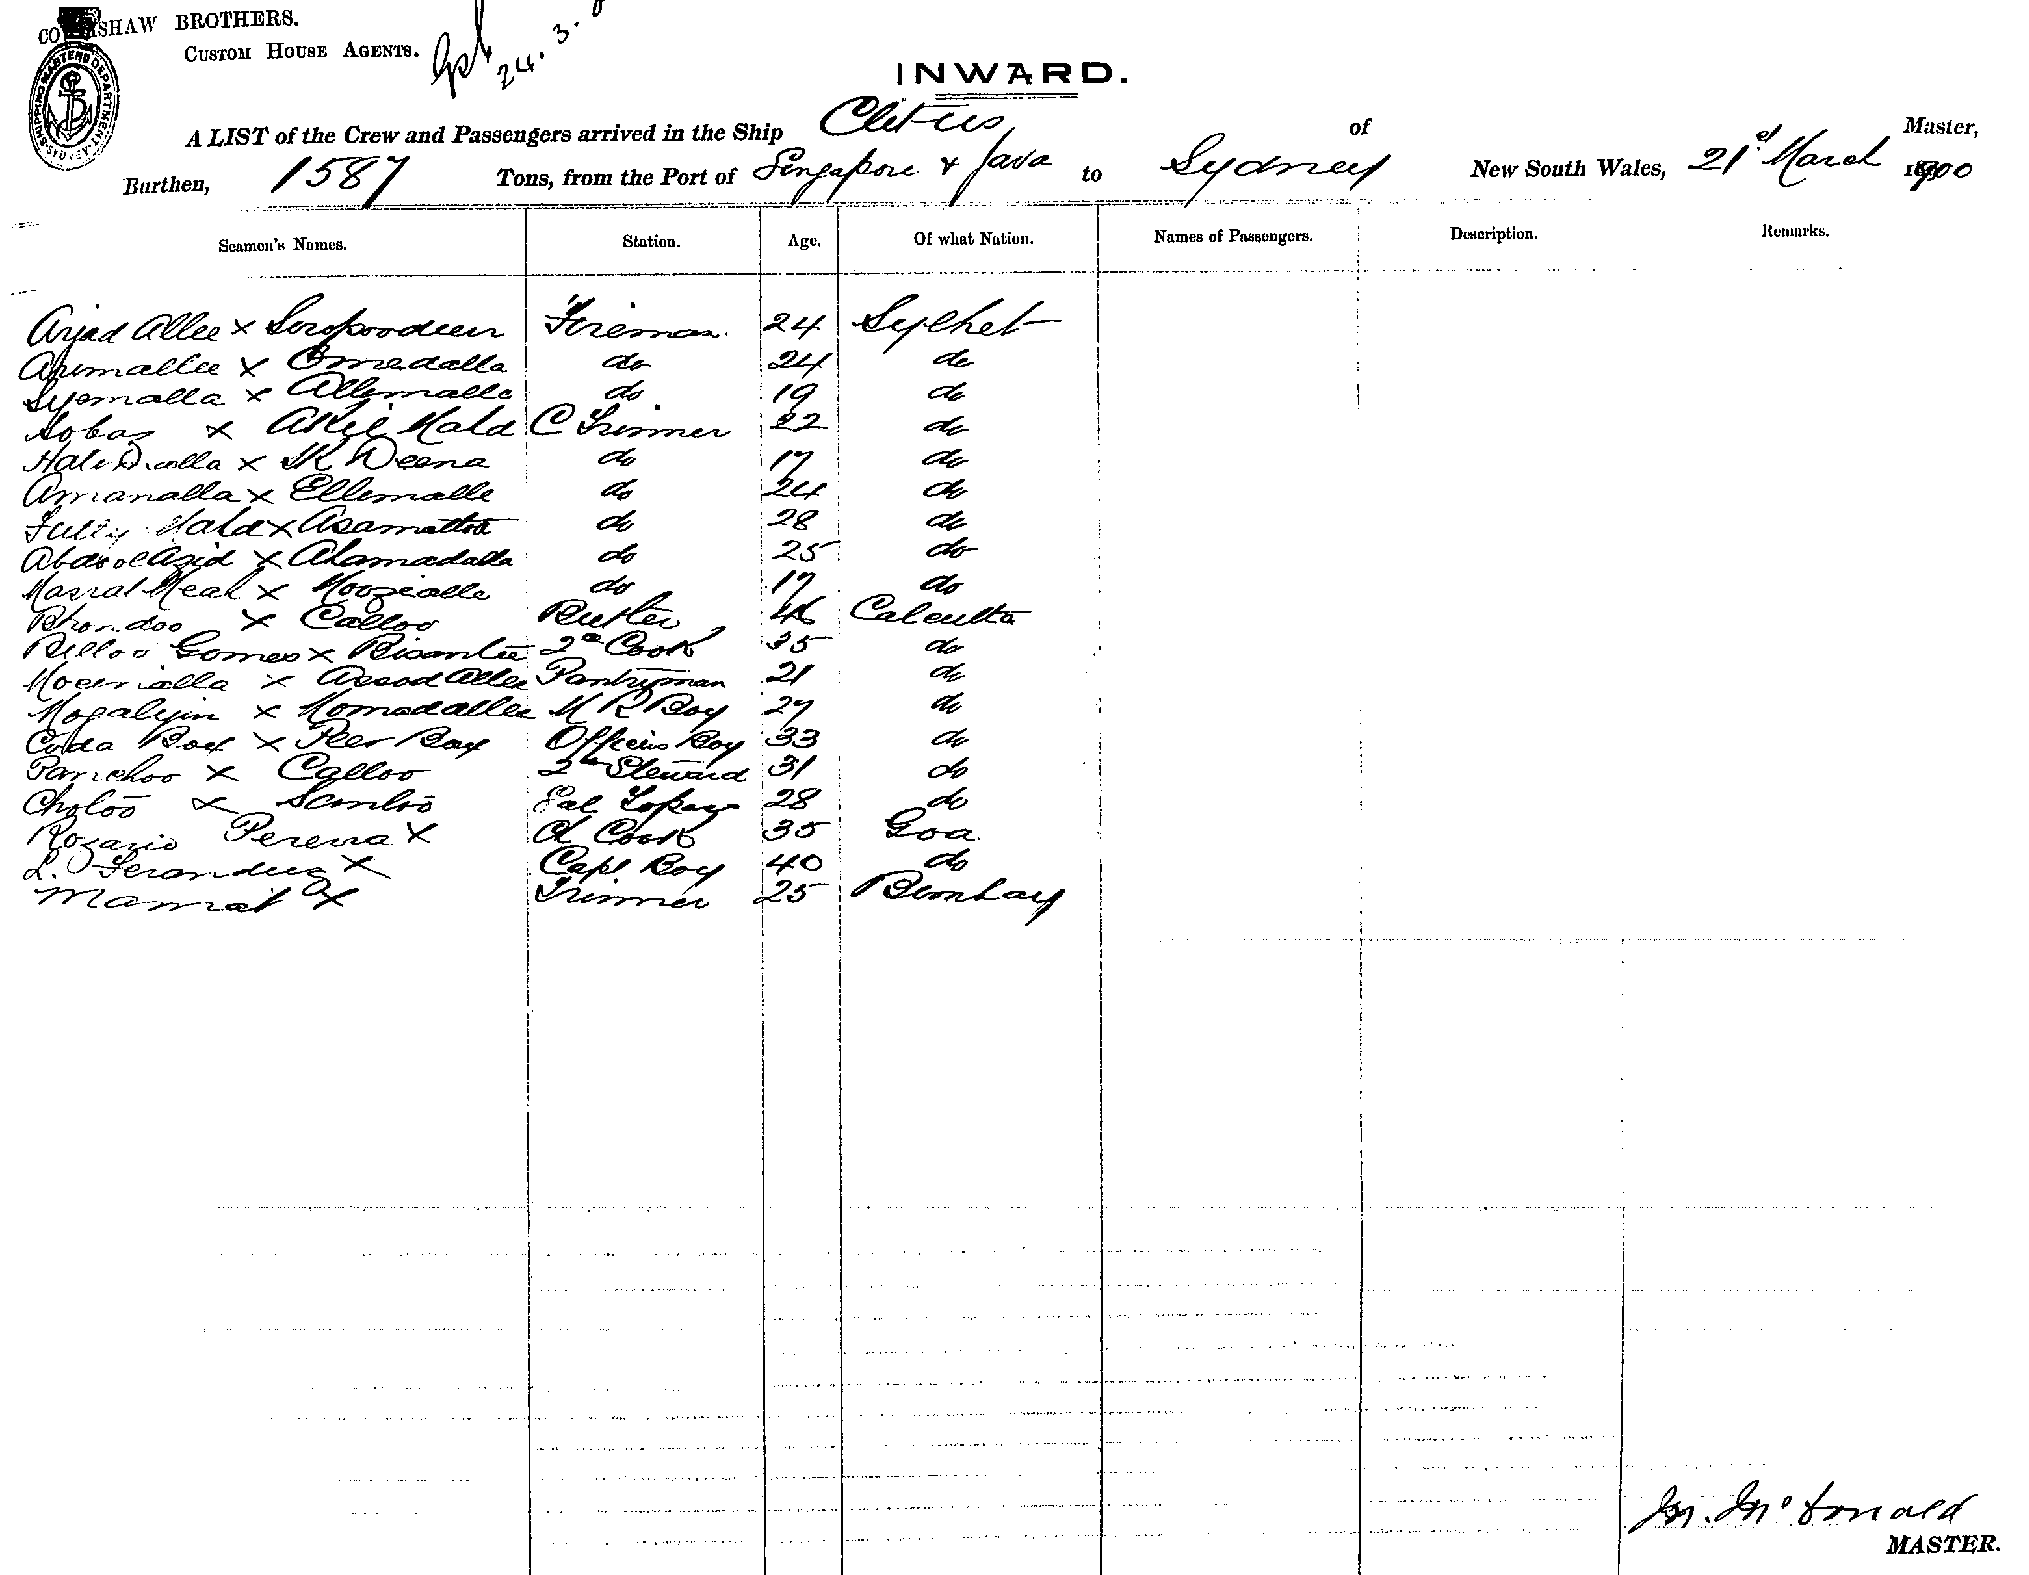 BROTHERS.
CUSTOM HOUSE AGENTS.
24. 3.
INWARD.
A LIST of the Crew and Passengers arrived in the Ship Clitus of Master,
Burthen, 1587 Tons, from the Port of Singapore & Java to Sydney New South Wales, 21st March 1900
Seamen's Names. Station. Age. Of what Nation. Names of Passengers. Description. Remarks.
Arjad Allee x Seropoodeen Fireman 24 Sylhet
Arimallee x Omedalla do 24 do
Syemalla x Allymalle do 19 do
Sobas x Akil Mala C Trimmer 22 do
x SK Deena do 17 do
Amanalla x Ellemalle do 24 do
Fully Mala x do 28 do
Abdool Azid x Ahamadalla do 25 do
Meah x Moozialle do 17 do
Bhondoo x Calloo Butler 46 Calcutta
Billoo Gomes x 2nd Cook 35 do
x Assod Allee Pantryman 21 do
x Homedallee M R Boy 27 do
Coda Box x Peer Box Officers Boy 33 do
Panchoo x Calloo 2nd Steward 31 do
Choloo x 28 do
Rozario Pereira x Ch Cook 35 Goa
L. x Capt Boy 40 do
x Trimmer 25 Bombay
M. McDonald
MASTER.